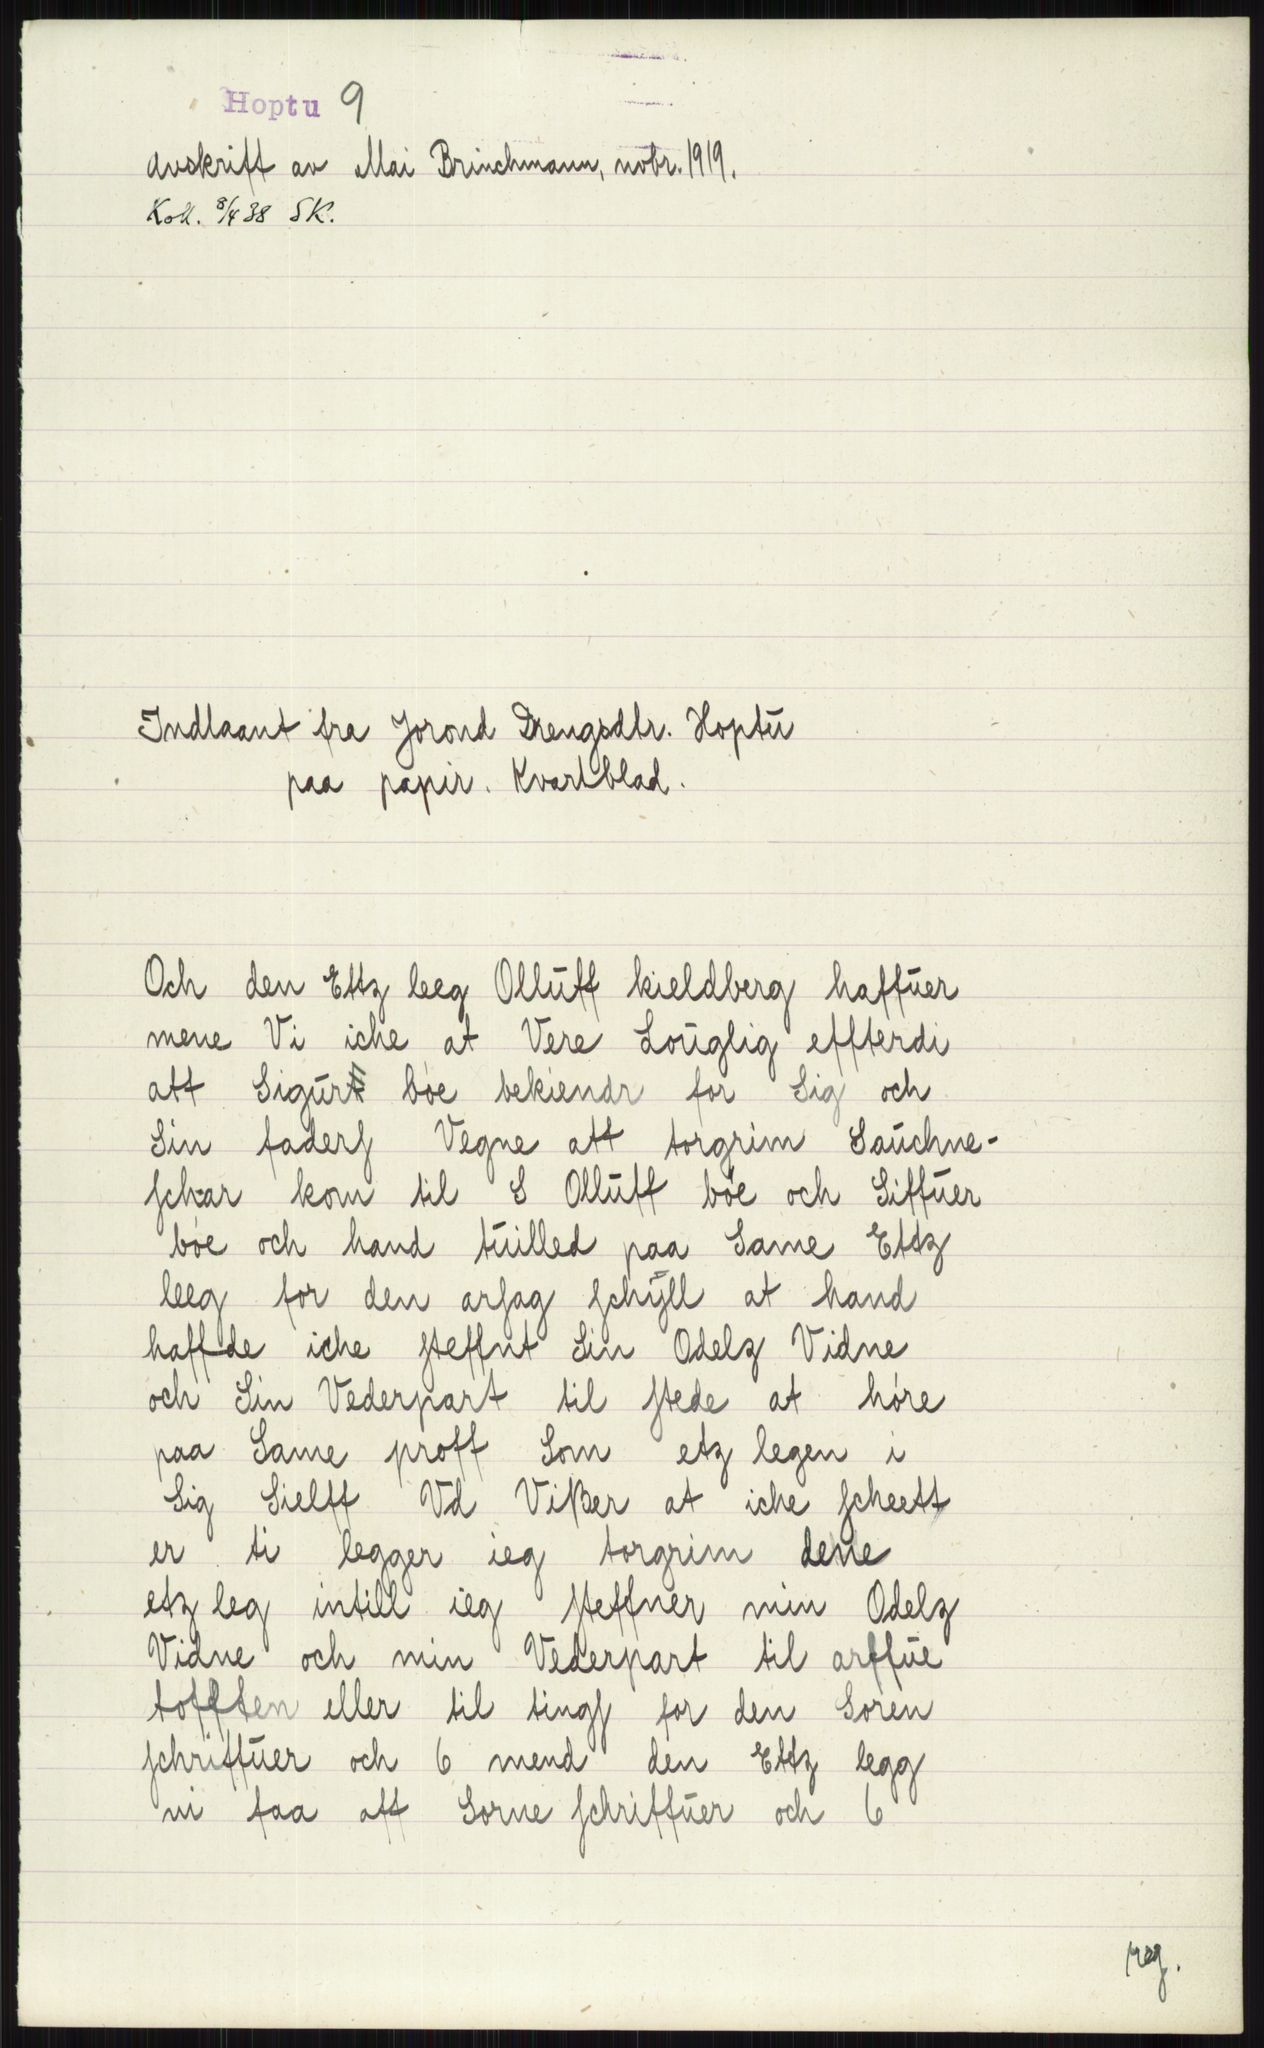 Hoptu 9
Avskrift av Mai Brinchmann, novbr. 1919.
Koll. 8/4 38 SK.
Indlaant fra Jorond Drengsdtr. Hoptŭ
paa papir. Kvartblad.
Och den Ettz leeg Ollŭff kieldberg haffŭer
mene Vi iche at Vere Loŭglig effterdi
att Sigŭrt bóe bekiendr for Sig och
Sin faderſ Vegne att torgrim Saŭchne-
ſchar kom til S Ollŭff bóe och Siffŭer
bóe och hand tŭilled paa Same Ettz
leeg for den arſag ſchÿll at hand
haffde iche ſteffnt Sin Odelz Vidne
och Sin Vederpart til ſtede at hóre
paa Same proff Som etz legen i
Sig Sielff Vd Vißer at iche ſcheett
er ti legger ieg torgrim dene
etz leg intill ieg ſteffner min Odelz
Vidne och min Vederpart til arffŭe
tofften eller til tingſ for den Soren
ſchriffŭer och 6 mend den Ettz legg
vi faa aff Sorne ſchriffŭer och 6
reg.